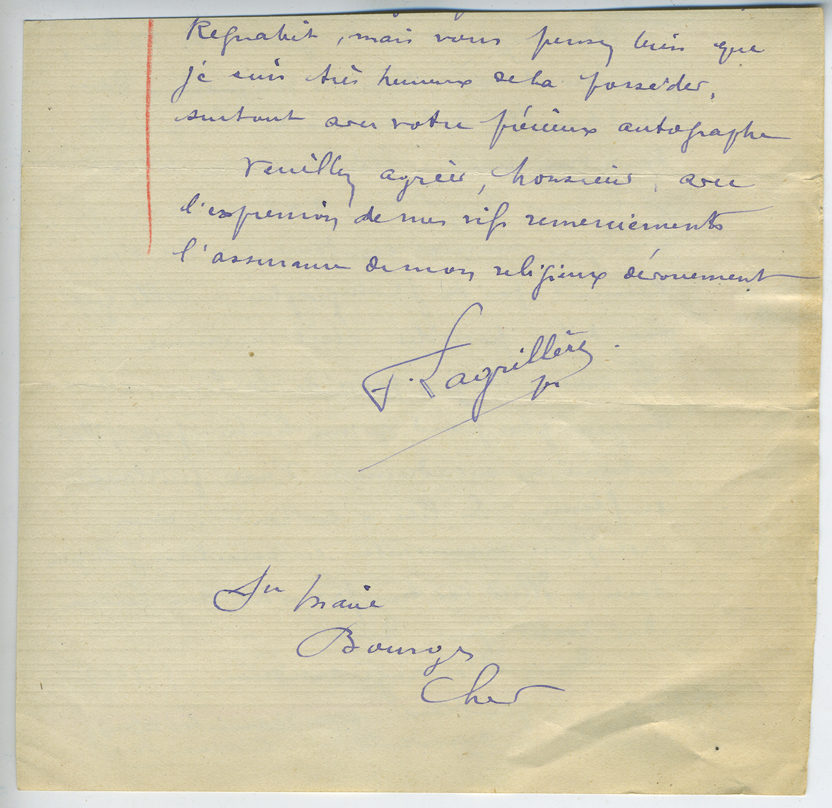 Regnabit, mais vous pensez bien que
je suis très heureux de la posséder,
surtout avec votre précieux autographe
Veuillez agréer, Monsieur, avec
l'expression de mes vifs remerciements
l'assurance de mon religieux dévouement
F. Lagrillère
pr
Bourges
Cher